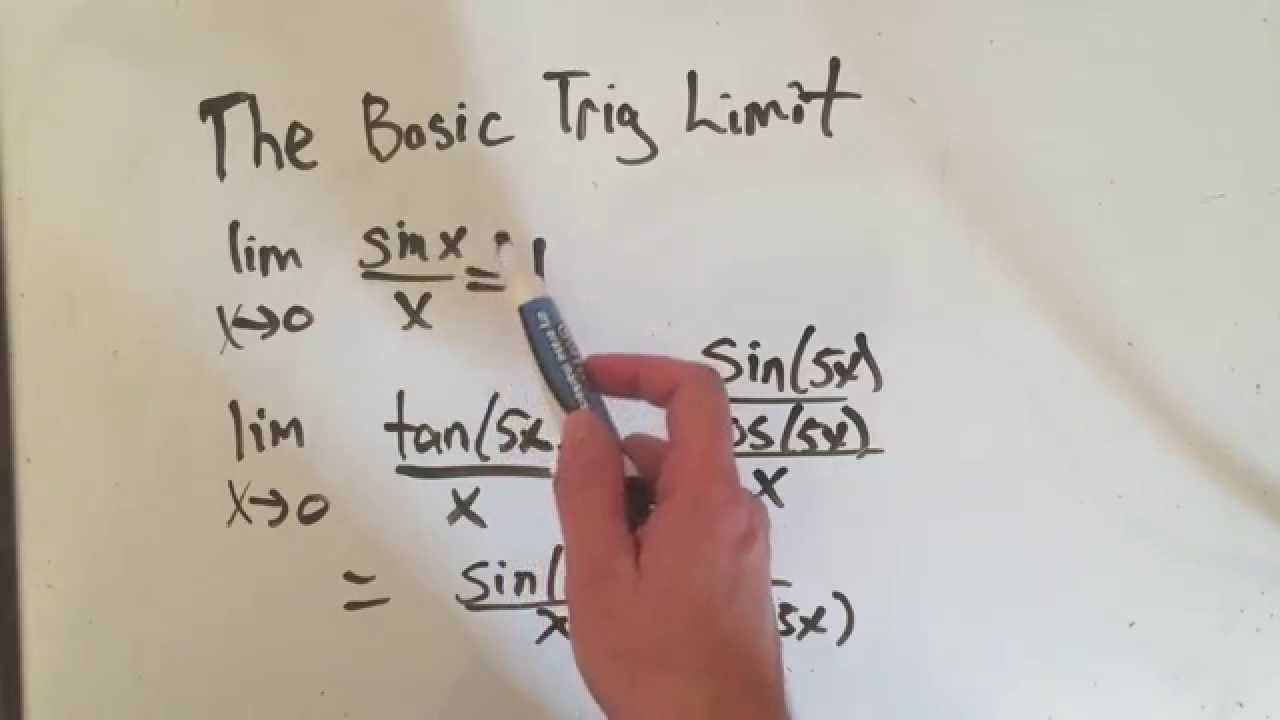 The Basic Trig Limit
lim sin x / x = 1
x→0
lim tan(5x / x sin(5x) / os(5x) / x
x→0
= sin( / x 5x)